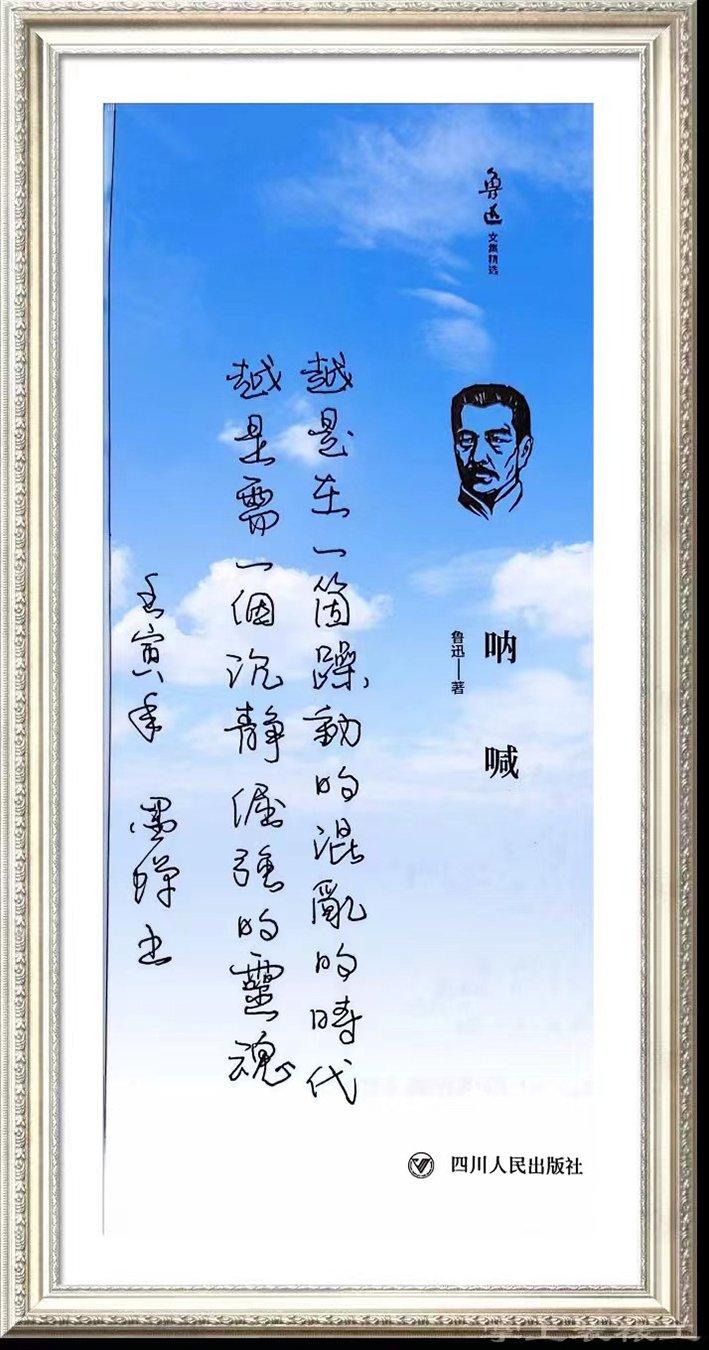 鲁迅
文集精选
呐喊
鲁迅—著
越是在一箇躁動的混亂的時代
越是需一個沉靜倔強的靈魂
壬寅年 书
四川人民出版社